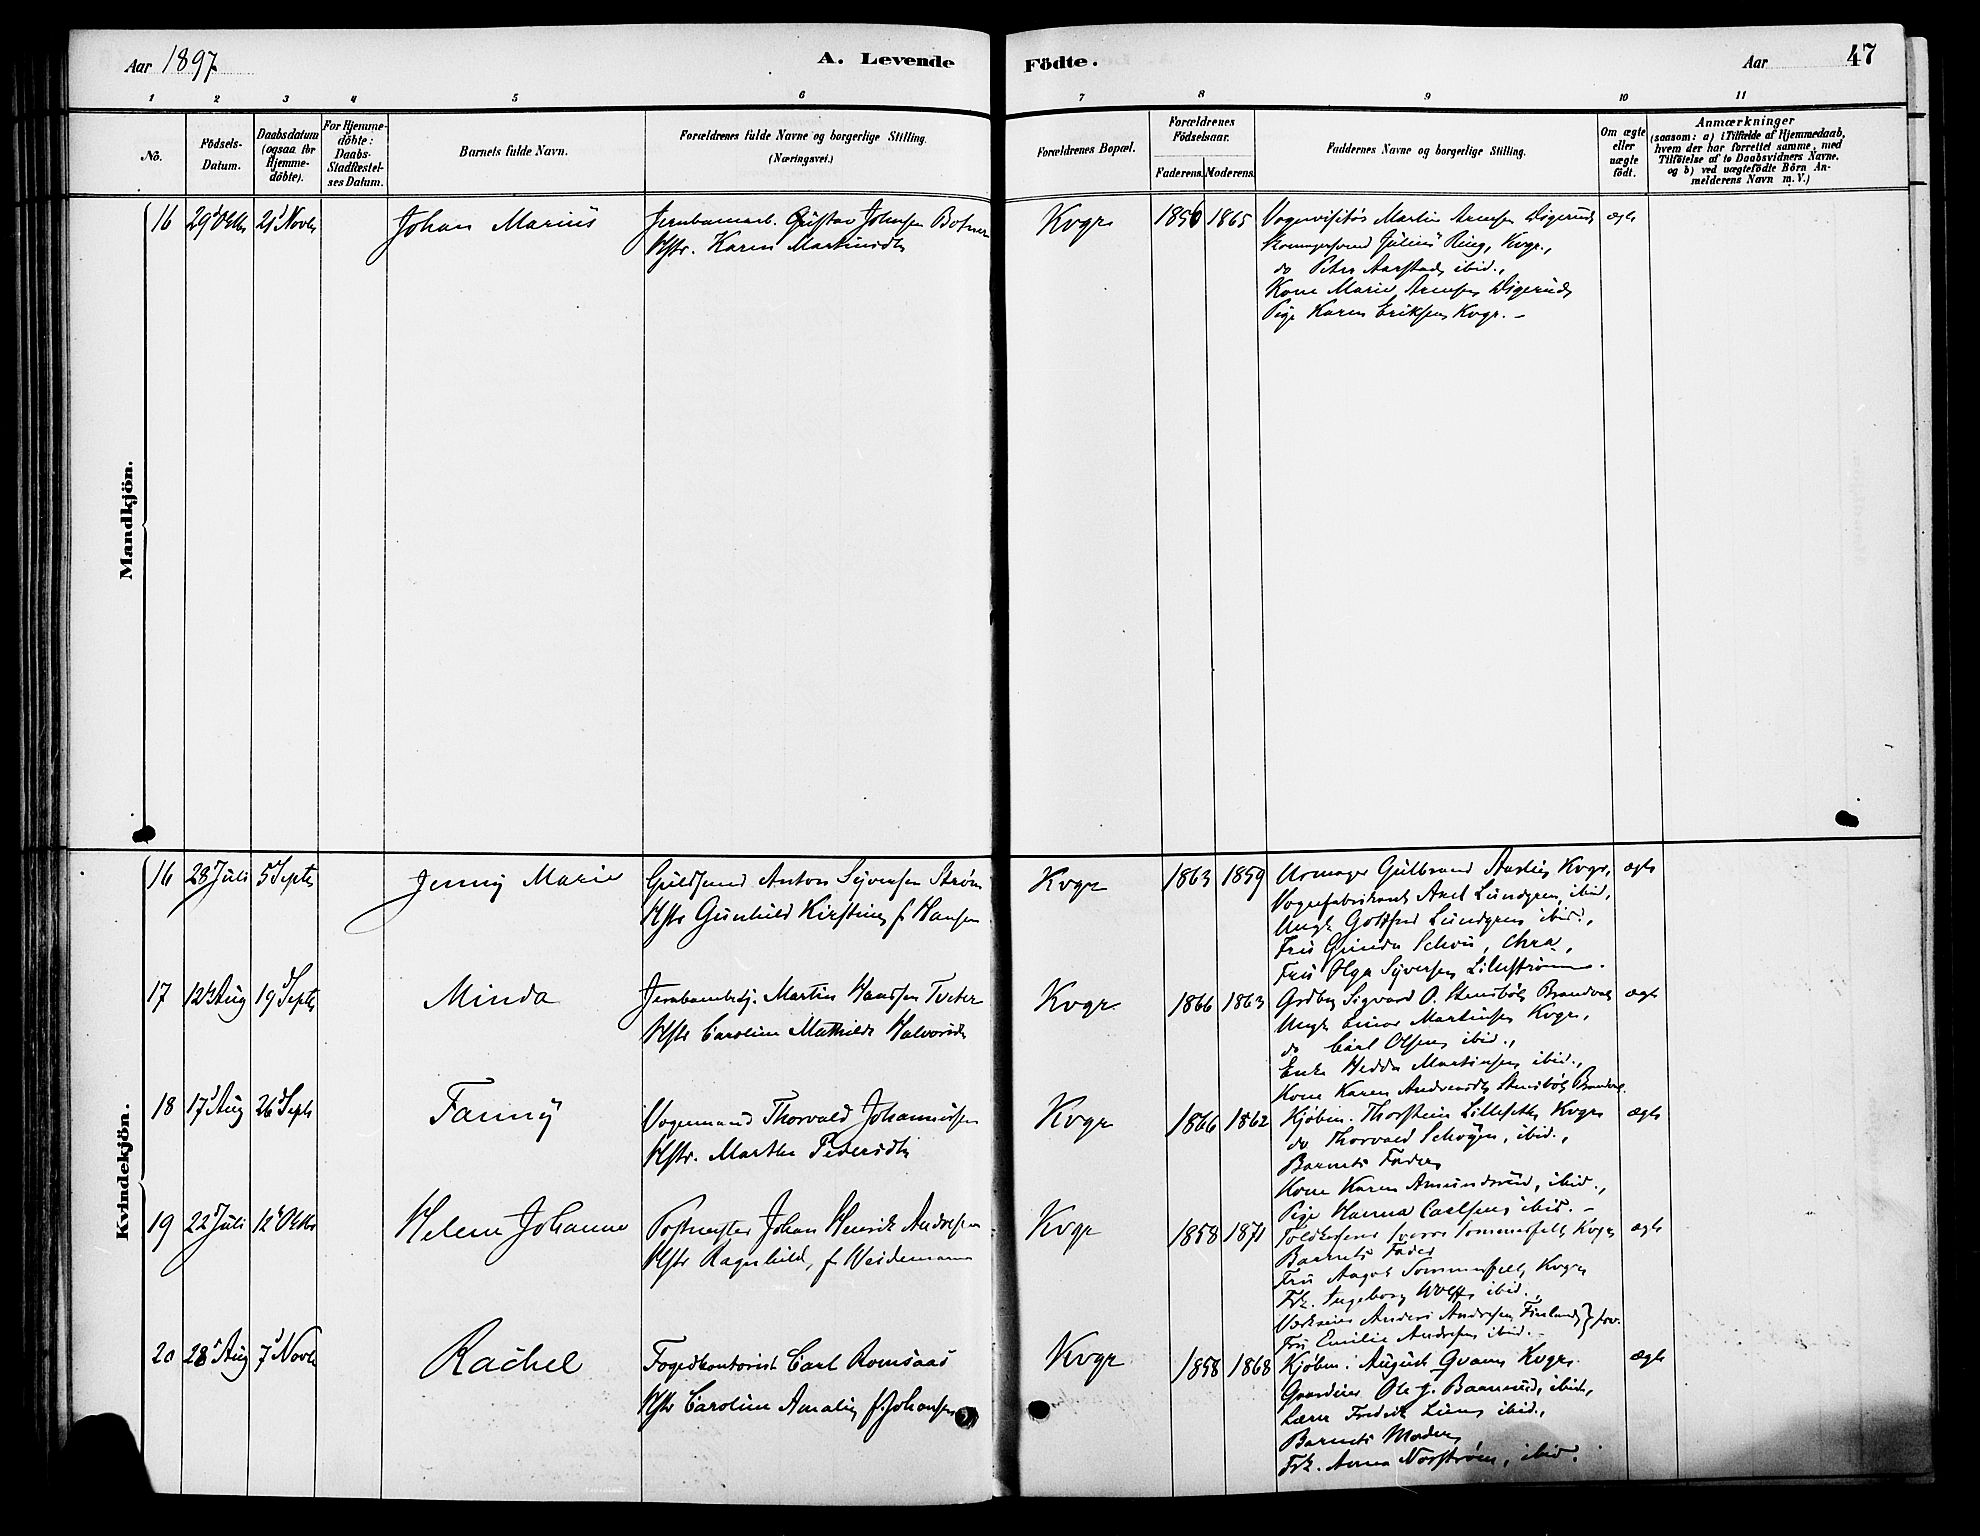 Aar 1897
A. Levende
Födte.
Aar
47
1 2 3 4 5 6 7 8 9 10 11
No.
Födsels-
Datum.
Daabsdatum
(ogsaa for
Hjemme-
döbte).
For Hjemme-
döbte:
Daabs-
Stadfæstel-
ses Datum.
Barnets fulde Navn.
Forældrenes fulde Navne og borgerlige Stilling.
(Næringsvei.)
Forældrenes Bopæl.
Forældrenes
Födselsaar.
Faderens. Moderens.
Faddernes Navne og borgerlige Stilling.
Om ægte
eller
uægte
født.
Anmærkninger
(saasom: a) i Tilfælde af Hjemmedaab,
hvem der har forrettet samme, med
Tilföielse af to Daabsvidners Navne,
og b) ved uægtefödte Börn An-
melderens Navn m. V.)
Mandkjön.
16 29 Oktb 21 Novb Johan Marius
Jernbanearb. Gustav Johnsen
Hstr. Karen Martinsdtr
Kvgr 1850 1865
Vognvisitör Martin Arnesen Digerud
Julius Ring, Kvgr.,
do Peter Aarstad, ibid.,
Kone Marie Arnesen Digerud
Pige Karen Eriksen Kvgr.
ægte
Kvindekjön.
16 28 Juli 5 Septb Jenny Marie
Guldsmed Anton Syversen Ström
Hstr Gunhild Kirstine f. Hansen
Kvgr 1863 1859
Urmager Gulbrand Kvgr,
Vognfabrikant Axel Lundgren, ibid,
Ungk Gottfred Lundgren ibid.,
Fru Schou, Chra,
Fru Olga Syversen Lilleström.
ægte
17 12 Aug 19 Septb Minda
Martin Hansen Tveter
Hstr Caroline Mathilde Halvorsdtr
Kvgr 1866 1863
Grdbr Sigvard O. Brandval
Ungk Einar Martinsen Kvgr,
do Carl Olsen ibid.,
Enke Hedda Martinsen ibid.,
Kone Karen Andreasdtr Brandval
ægte
18 17 Aug 26 Septb Fanny
Vognmand Thorvald Johannesen
Hstr. Marthe Pedersdtr
Kvgr 1866 1862
Kjöbm. Thorstein Lilleseth Kvgr
do Thorvald Schøyen, ibid.,
Barnets Fader
Kone Karen Amundsrud, ibid.,
Pige Hanna Carlsen ibid.
ægte
19 22 Juli 12 Oktbr Helene Johanne
Postmester Johan Henrik Andresen
Hstr Ragnhild, f. Weidemann
Kvgr 1858 1871
Sommerfelt Kvgr
Barnets Fader
Fru Aagot Sommerfelt, Kvgr
Frk. Ingeborg Wolff, ibid.,
Værkseier Anders Andresen Finland
Fru Emilie Andresen ibid.
ægte
20 28 Aug 7 Novb Rachel
Fogedkontorist Carl Romsaas
Hstr Caroline Amalie f. Johansen
Kvgr 1858 1868
Kjöbm. August Qvam, Kvgr.
Gaardeier Ole G. ibid.,
Lærer Fredrik Lien, ibid.,
Barnets Moder,
Frk. Anna Norström, ibid.
ægte